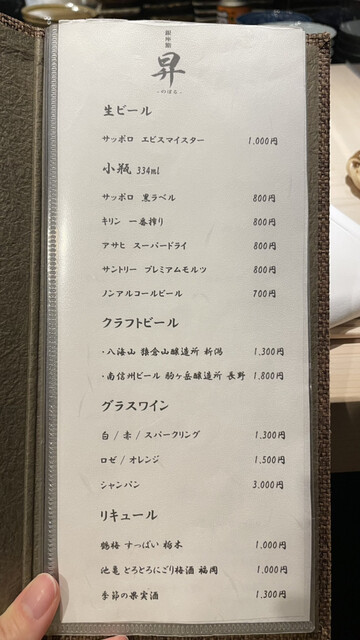 銀座鮨
昇
-のぼる-
生ビール
サッポロ エビスマイスター 1,000円
小瓶 334ml
サッポロ 黒ラベル 800円
キリン 一番搾り 800円
アサヒ スーパードライ 800円
サントリー プレミアムモルツ 800円
ノンアルコールビール 700円
クラフトビール
・八海山 猿倉山醸造所 新潟 1,300円
・南信州ビール 駒ヶ岳醸造所 長野 1,800円
グラスワイン
白 / 赤 / スパークリング 1,300円
ロゼ / オレンジ 1,500円
シャンパン 3,000円
リキュール
鶴梅 すっぱい 栃木 1,000円
池亀 とろとろにごり梅酒 福岡 1,000円
季節の果実酒 1,300円